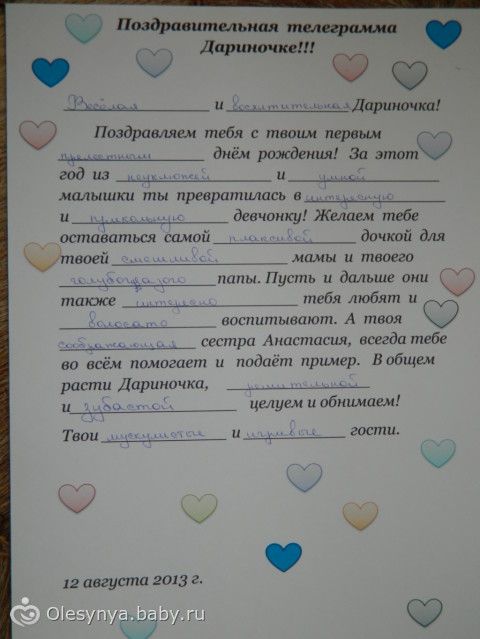 Поздравительная телеграмма
Дариночке!!!
Весёлая и восхитительная Дариночка!
Поздравляем тебя с твоим первым
прелестным днём рождения! За этот
год из неуклюжей и умной
малышки ты превратилась в интересную
и пушкальную девчонку! Желаем тебе
оставаться самой плаксивой дочкой для
твоей смешливой мамы и твоего
голубоглазого папы. Пусть и дальше они
также интересно тебя любят и
волосато воспитывают. А твоя
соображающая сестра Анастасия, всегда тебе
во всём помогает и подаёт пример. В общем
расти Дариночка, решительной
и зубастой целуем и обнимаем!
Твои мускулистые и игривые гости.
12 августа 2013 г.
Olesynya.baby.ru